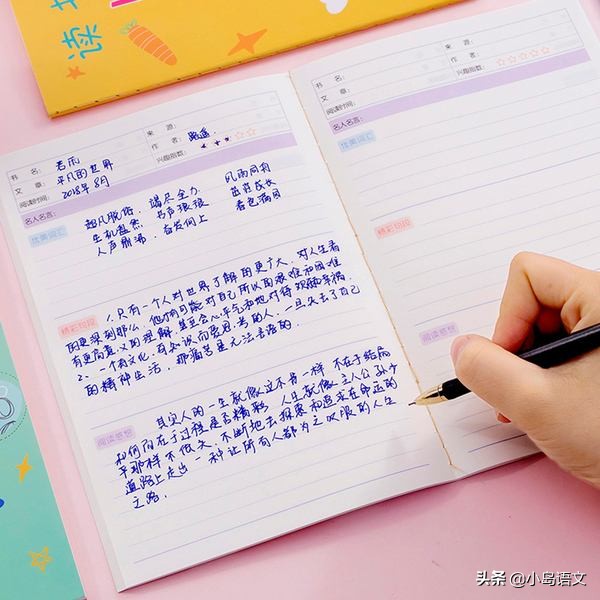 读书
书 名: 若雨
文 章: 平凡的世界
阅读时间: 2018年8月
来 源:
作 者: 路遥
兴趣指数: ★★★☆☆
名人名言:
优美词汇
超凡脱俗 竭尽全力 风雨同舟
生机盎然 书声琅琅 茁壮成长
人声鼎沸 奋发向上 春色满园
精彩句段
1. 只有一个人对世界了解的更广大, 对人生看
的更深刻那么, 他才有可能对自己所以的艰难和困难
有更高意义的理解, 甚至会心平气和地对待欢酶幸福.
2. 一个有文化, 有知识而爱思考的人, 一旦失去了自己
的精神生活, 那痛苦是无法言语的.
阅读感想
其实人的一生就像这本书一样 不在于结局
如何而在于过程是否精彩 人生就像主人公孙少
平那样不做失, 不断地去探索和追求在命运的
道路上走出 一种让所有人都为之叹服的人生
之路.
书 名:
文 章:
阅读时间:
来 源:
作 者:
兴趣指数: ☆☆☆☆☆
名人名言:
优美词汇
精彩句段
阅读感想
头条 @小岛语文